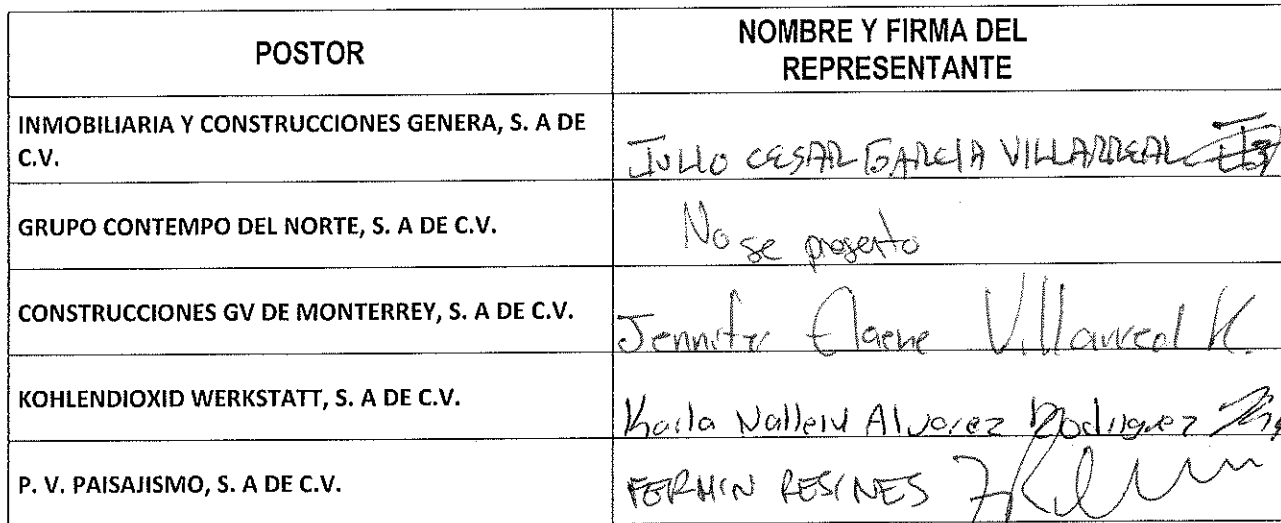 POSTOR
NOMBRE Y FIRMA DEL
REPRESENTANTE
INMOBILIARIA Y CONSTRUCCIONES GENERA, S. A DE
C.V.
JULIO CESAR GARCIA VILLARREAL
GRUPO CONTEMPO DEL NORTE, S. A DE C.V.
No se presento
CONSTRUCCIONES GV DE MONTERREY, S. A DE C.V.
Jennifer Elaene Villarreal K.
KOHLENDIOXID WERKSTATT, S. A DE C.V.
Karla Nallely Alvarez Rodriguez
P. V. PAISAJISMO, S. A DE C.V.
FERMIN RESINES